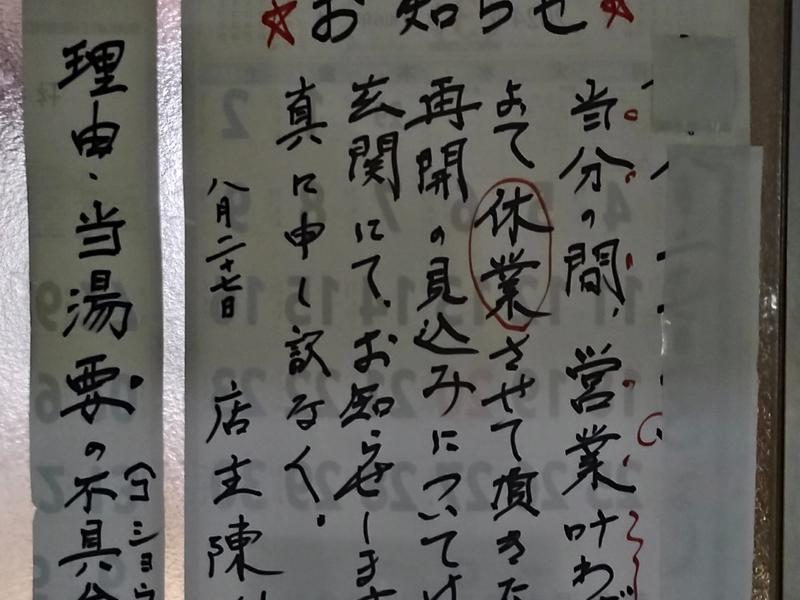 お知らせ
当分の間、営業叶わ
よて休業させて頂きた
再開の見込みについては
玄関にて、お知らせします
真に申し訳なく。
八月二十七日 店主陳
理由、当湯要の不具合